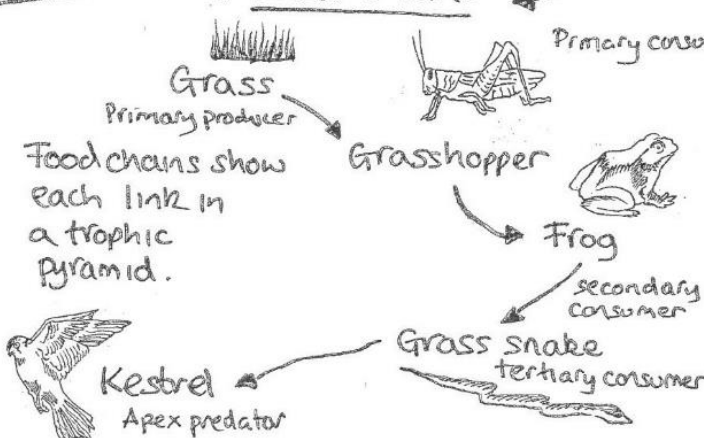 Primary consu
Grass
Primary producer
Food chains show
each link in
a trophic
pyramid.
Grasshopper
Frog
secondary
consumer
Grass snake
tertiary consumer
Kestrel
Apex predator